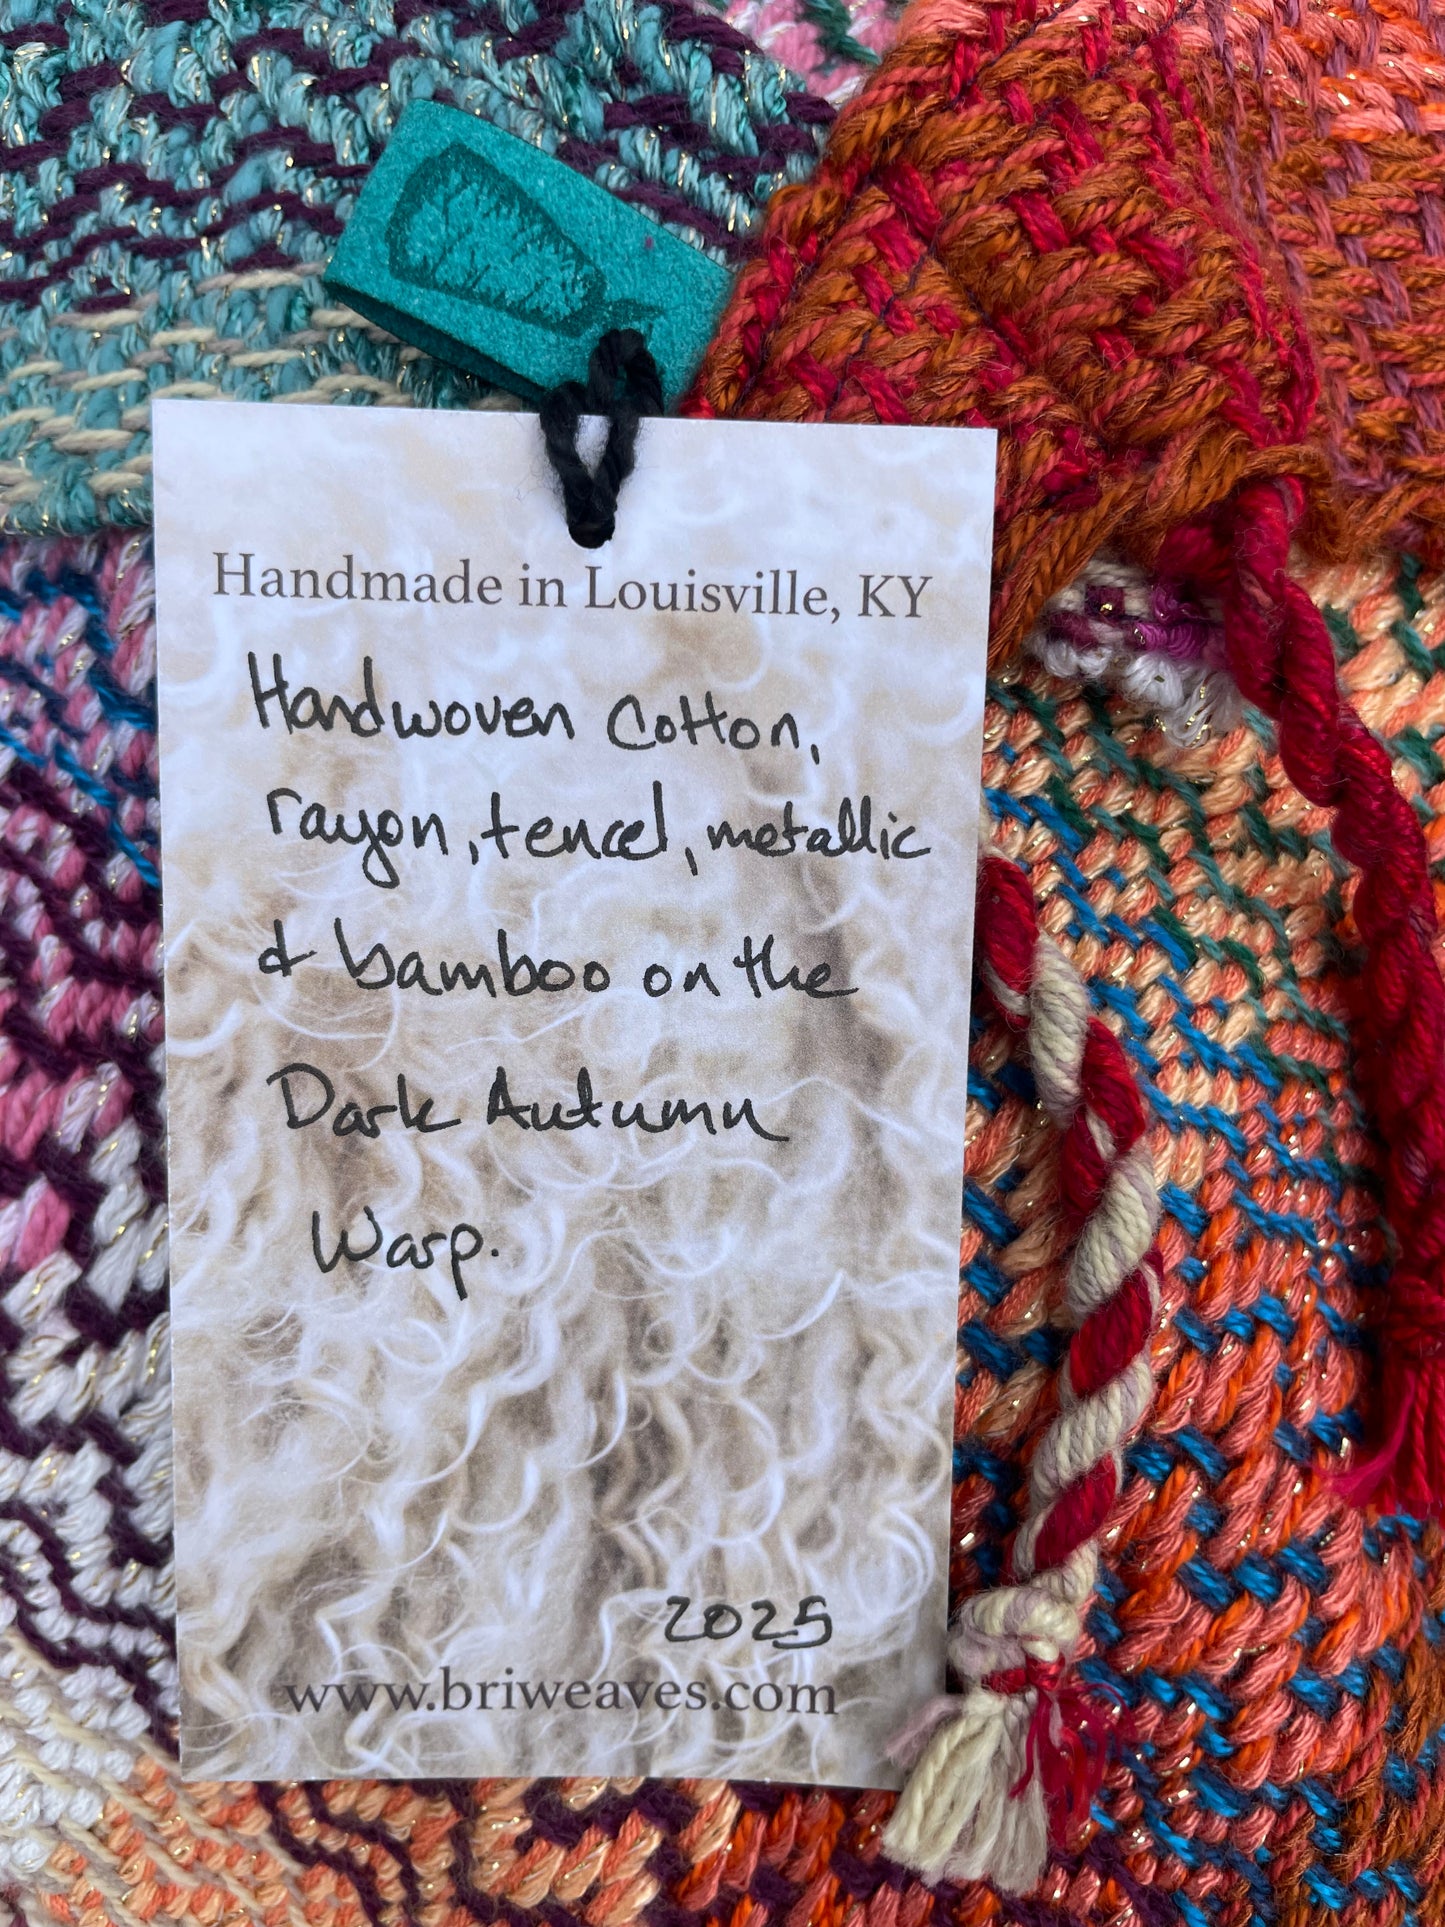 Handmade in Louisville, KY
Handwoven Cotton,
rayon, tencel, metallic
& bamboo on the
Dark Autumn
Warp.
2025
www.briweaves.com